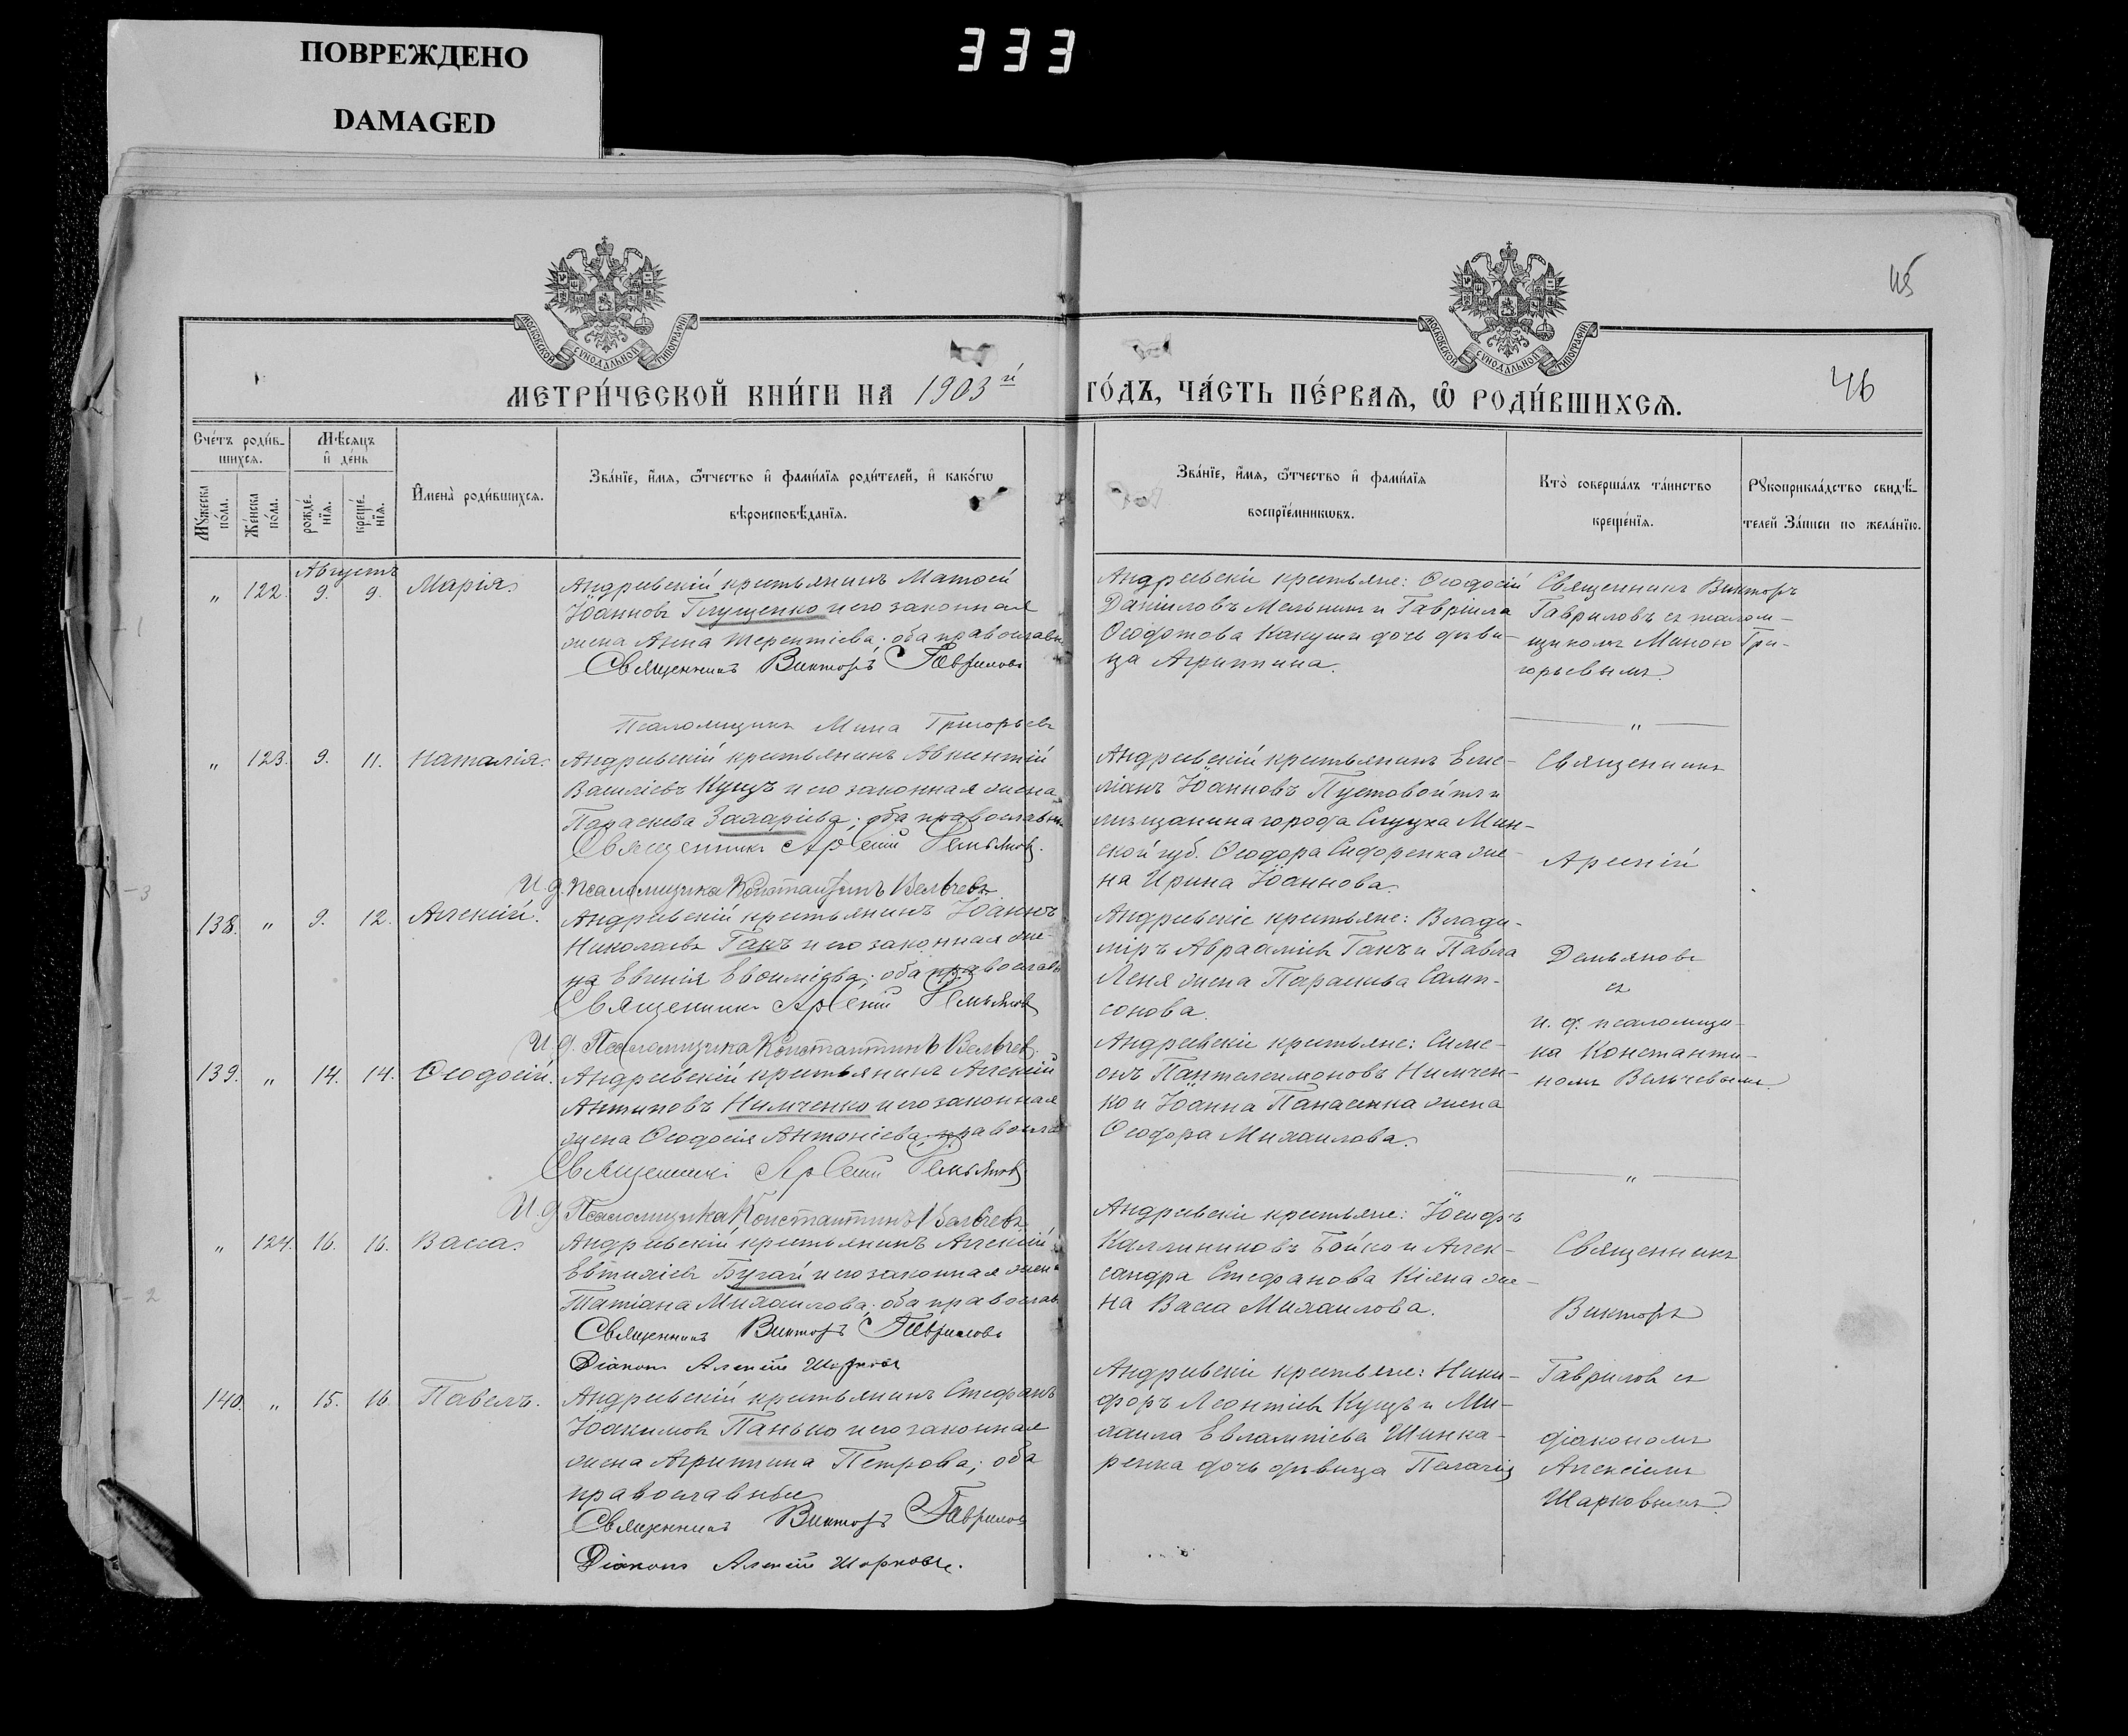 ПОВРЕЖДЕНО
DAMAGED
333
МОСКОВСКОЙ СУНОДАЛЬНОЙ ТИПОГРАФІИ
МОСКОВСКОЙ СУНОДАЛЬНОЙ ТИПОГРАФІИ
45
46
МЕТРИ́ЧЕСКОЙ КНИ́ГИ НА 1903й ГО́ДЪ, ЧА́СТЬ ПЕ́РВАѦ, Ѡ РОДИ́ВШИХСѦ.
Сче́тъ роди́в-
шихсѧ.
Мѣ́сѧцъ
и де́нь
Мꙋ́жеска
по́ла.
Же́нска
по́ла.
рожде́-
нїѧ.
креще́-
нїѧ.
Имена̀ роди́вшихсѧ.
Зва́нїе, и́мѧ, ѻ́тчество и фами́лїѧ роди́телей, и како́гѡ
вѣроисповѣ́данїѧ.
Зва́нїе, и́мѧ, ѻ́тчество и фами́лїѧ
воспрїе́мникѡвъ.
Кто̀ соверша́лъ та́инство
креще́нїѧ.
Рꙋкоприкла́дство свидѣ́-
телей за́писи по жела́нїю.
Августъ
„ 122. 9. 9. Марія.
Андреевскій крестьянинъ Матѳей
Іоанновъ Глущенко и его законная
жена Анна Терентіева; оба православн
Священникъ Викторъ Гавриловъ
Псаломщикъ Мина Григорьевъ
Андреевскіе крестьяне: Ѳеодосій
Даніиловъ Мельникъ и Гавріила
Ѳеодотова Какуши дочь дѣви-
ца Агриппина.
Священникъ Викторъ
Гавриловъ съ псалом-
щикомъ Миною Гри-
горьевымъ.
„
„ 123. 9. 11. Наталія.
Андреевскій крестьянинъ Авксентій
Василіевъ Куцъ и его законная жена
Параскева Захаріева; оба православн
Священникъ Арсеній Демьяновъ.
И. д. Псаломщика Константинъ Вельчевъ
Андреевскій крестьянинъ Еме-
ліанъ Іоанновъ Пустовойтъ и
мѣщанина города Слуцка Мин-
ской губ. Ѳеодора Сидоренка же-
на Ирина Іоаннова.
Священникъ
Арсеній
138. „ 9. 12. Алексій.
Андреевскій крестьянинъ Іоаннъ
Николаевъ Ганъ и его законная же-
на Евгенія Евѳиміева; оба православ
Священникъ Арсеній Демьяновъ
И. д. Псаломщика Константинъ Вельчев.
Андреевскіе крестьяне: Влади-
міръ Авраамовъ Ганъ и Павла
Леня жена Параскева Самп-
сонова.
Демьяновъ
съ
и. д. псаломщи-
ка Константи-
номъ Вельчевымъ
139. „ 14. 14. Ѳеодосій.
Андреевскій крестьянинъ Алексій
Антиповъ Нимченко и его законная
жена Ѳеодосія Антоніева; правосла
Священникъ Арсеній Демьяновъ
И. д. Псаломщика Константинъ Вельчевъ
Андреевскіе крестьяне: Симе-
онъ Пантелеимоновъ Нимчен-
ко и Іоанна Панасенка жена
Ѳеодора Михаилова.
„
„ 124. 16. 16. Васса.
Андреевскій крестьянинъ Алексій
Евтихіевъ Бугай и его законная жена
Татіана Михаилова; оба православ
Священникъ Викторъ Гавриловъ
Діаконъ Алексій Шарковъ
Андреевскіе крестьяне: Іосифъ
Каллиниковъ Бойко и Алек-
сандра Стефанова Кіяна же-
на Васса Михаилова.
Священникъ
Викторъ
140. „ 15. 16. Павелъ.
Андреевскій крестьянинъ Стефанъ
Іоакимовъ Панько и его законная
жена Агриппина Петрова; оба
православные
Священникъ Викторъ Гавриловъ
Діаконъ Алексій Шарковъ.
Андреевскіе крестьяне: Ники-
форъ Леонтіевъ Куцъ и Ми-
хаила Евлампіева Шинка-
ренка дочь дѣвица Пелагія
Гавриловъ съ
діакономъ
Алексіемъ
Шарковымъ.